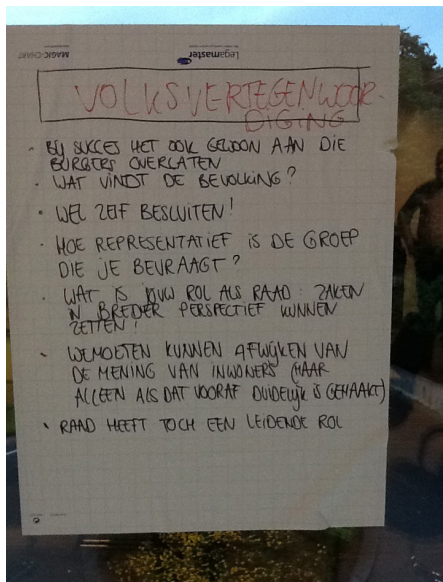 MAGIC-CHART
Legamaster
VOLKSVERTEGENWOOR-
DIGING
- BIJ SUCCES HET OOK GEWOON AAN DIE
BURGERS OVERLATEN
- WAT VINDT DE BEVOLKING?
- WEL ZELF BESLUITEN!
- HOE REPRESENTATIEF IS DE GROEP
DIE JE BEVRAAGT?
- WAT IS JOUW ROL ALS RAAD: ZAKEN
IN BREDER PERSPECTIEF KUNNEN
ZETTEN!
- WE MOETEN KUNNEN AFWIJKEN VAN
DE MENING VAN INWONERS (MAAR
ALLEEN ALS DAT VOORAF DUIDELIJK IS GEMAAKT)
- RAAD HEEFT TOCH EEN LEIDENDE ROL